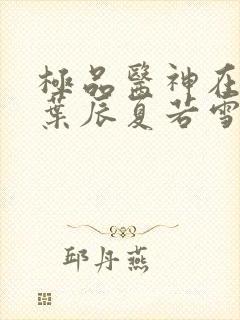 極品醫神在
葉辰夏若雪
邱丹燕